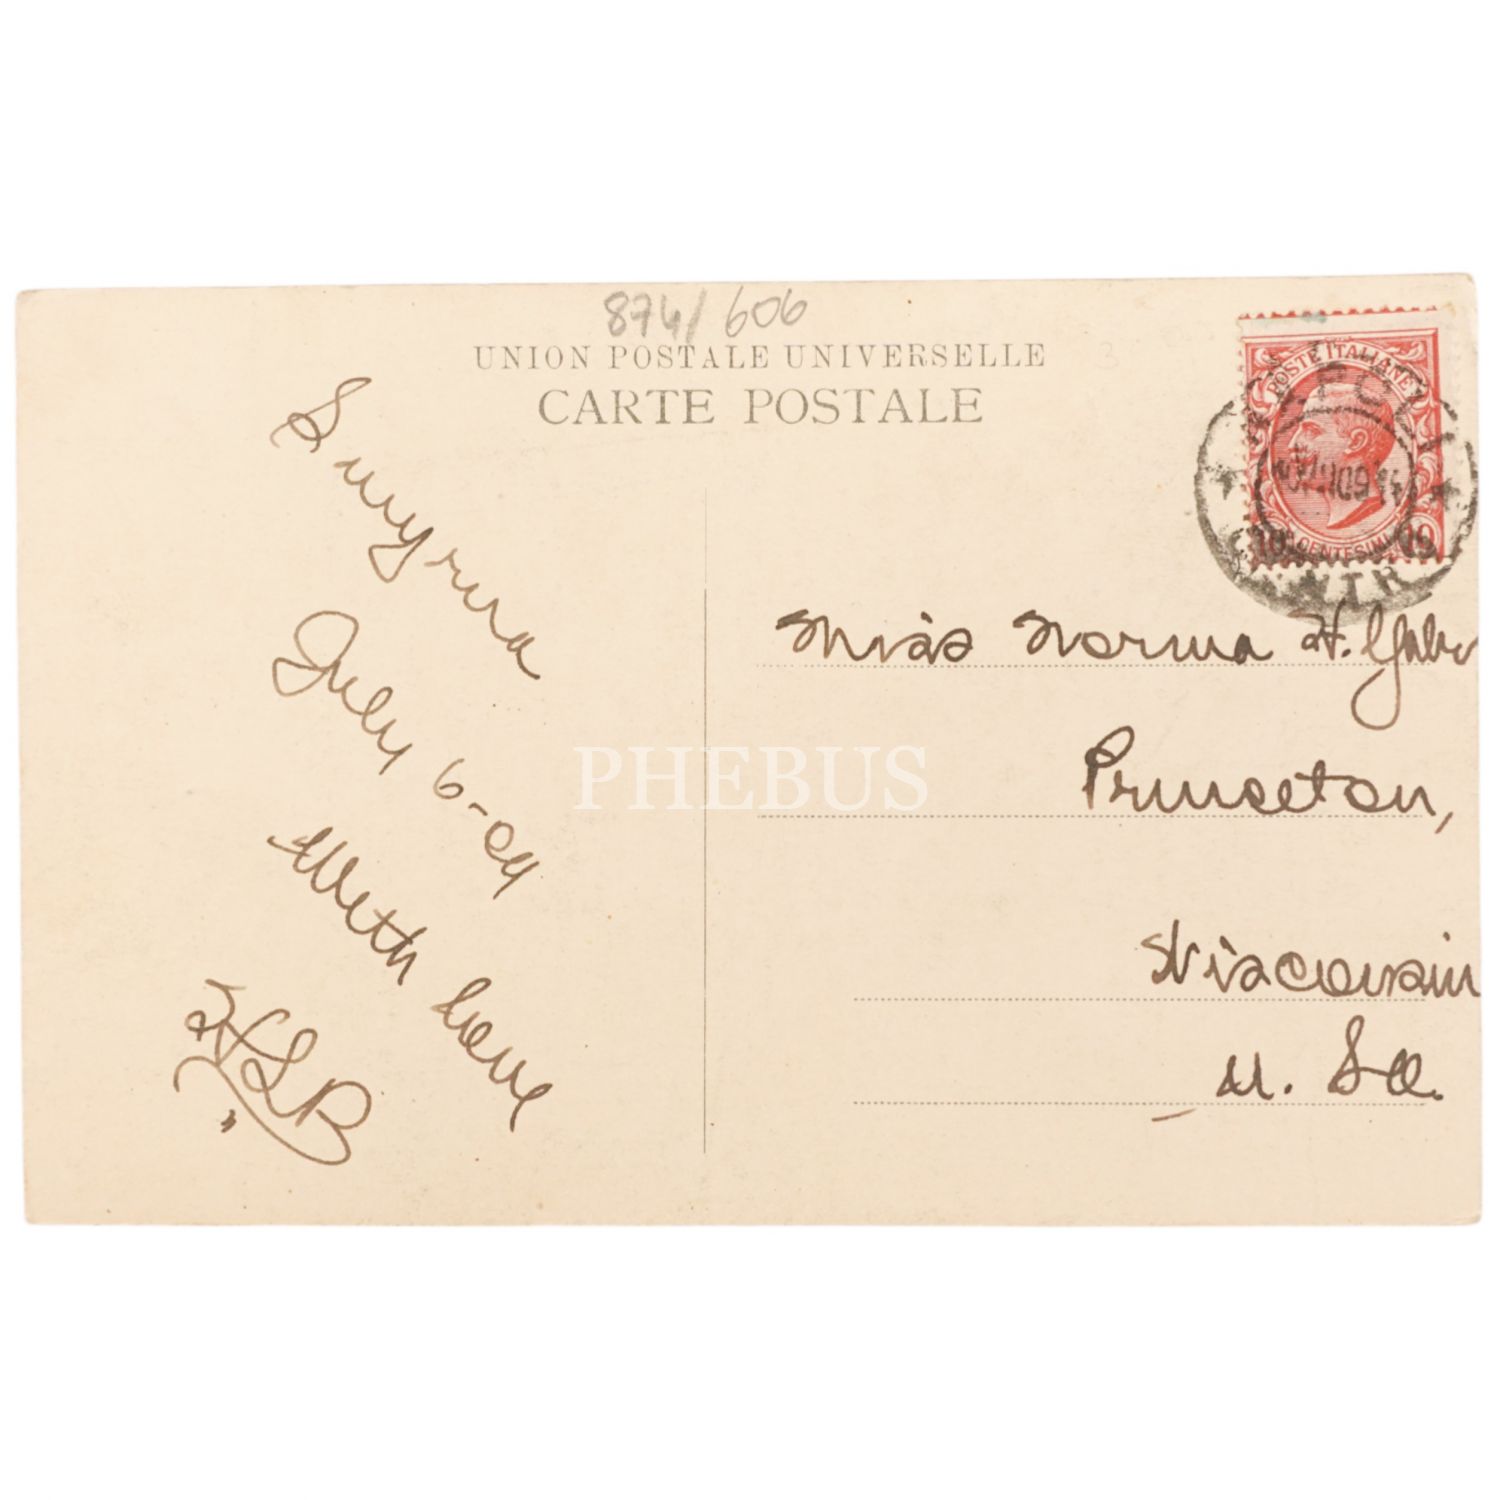 874/606
UNION POSTALE UNIVERSELLE
CARTE POSTALE
POSTE ITALIANE
NAPOLI
10 CENTESIMI 10
Smyrna
July 6-09
With love
HLB
Miss Norma H.
Princeton,
Wisconsin
U. S. A.
PHEBUS